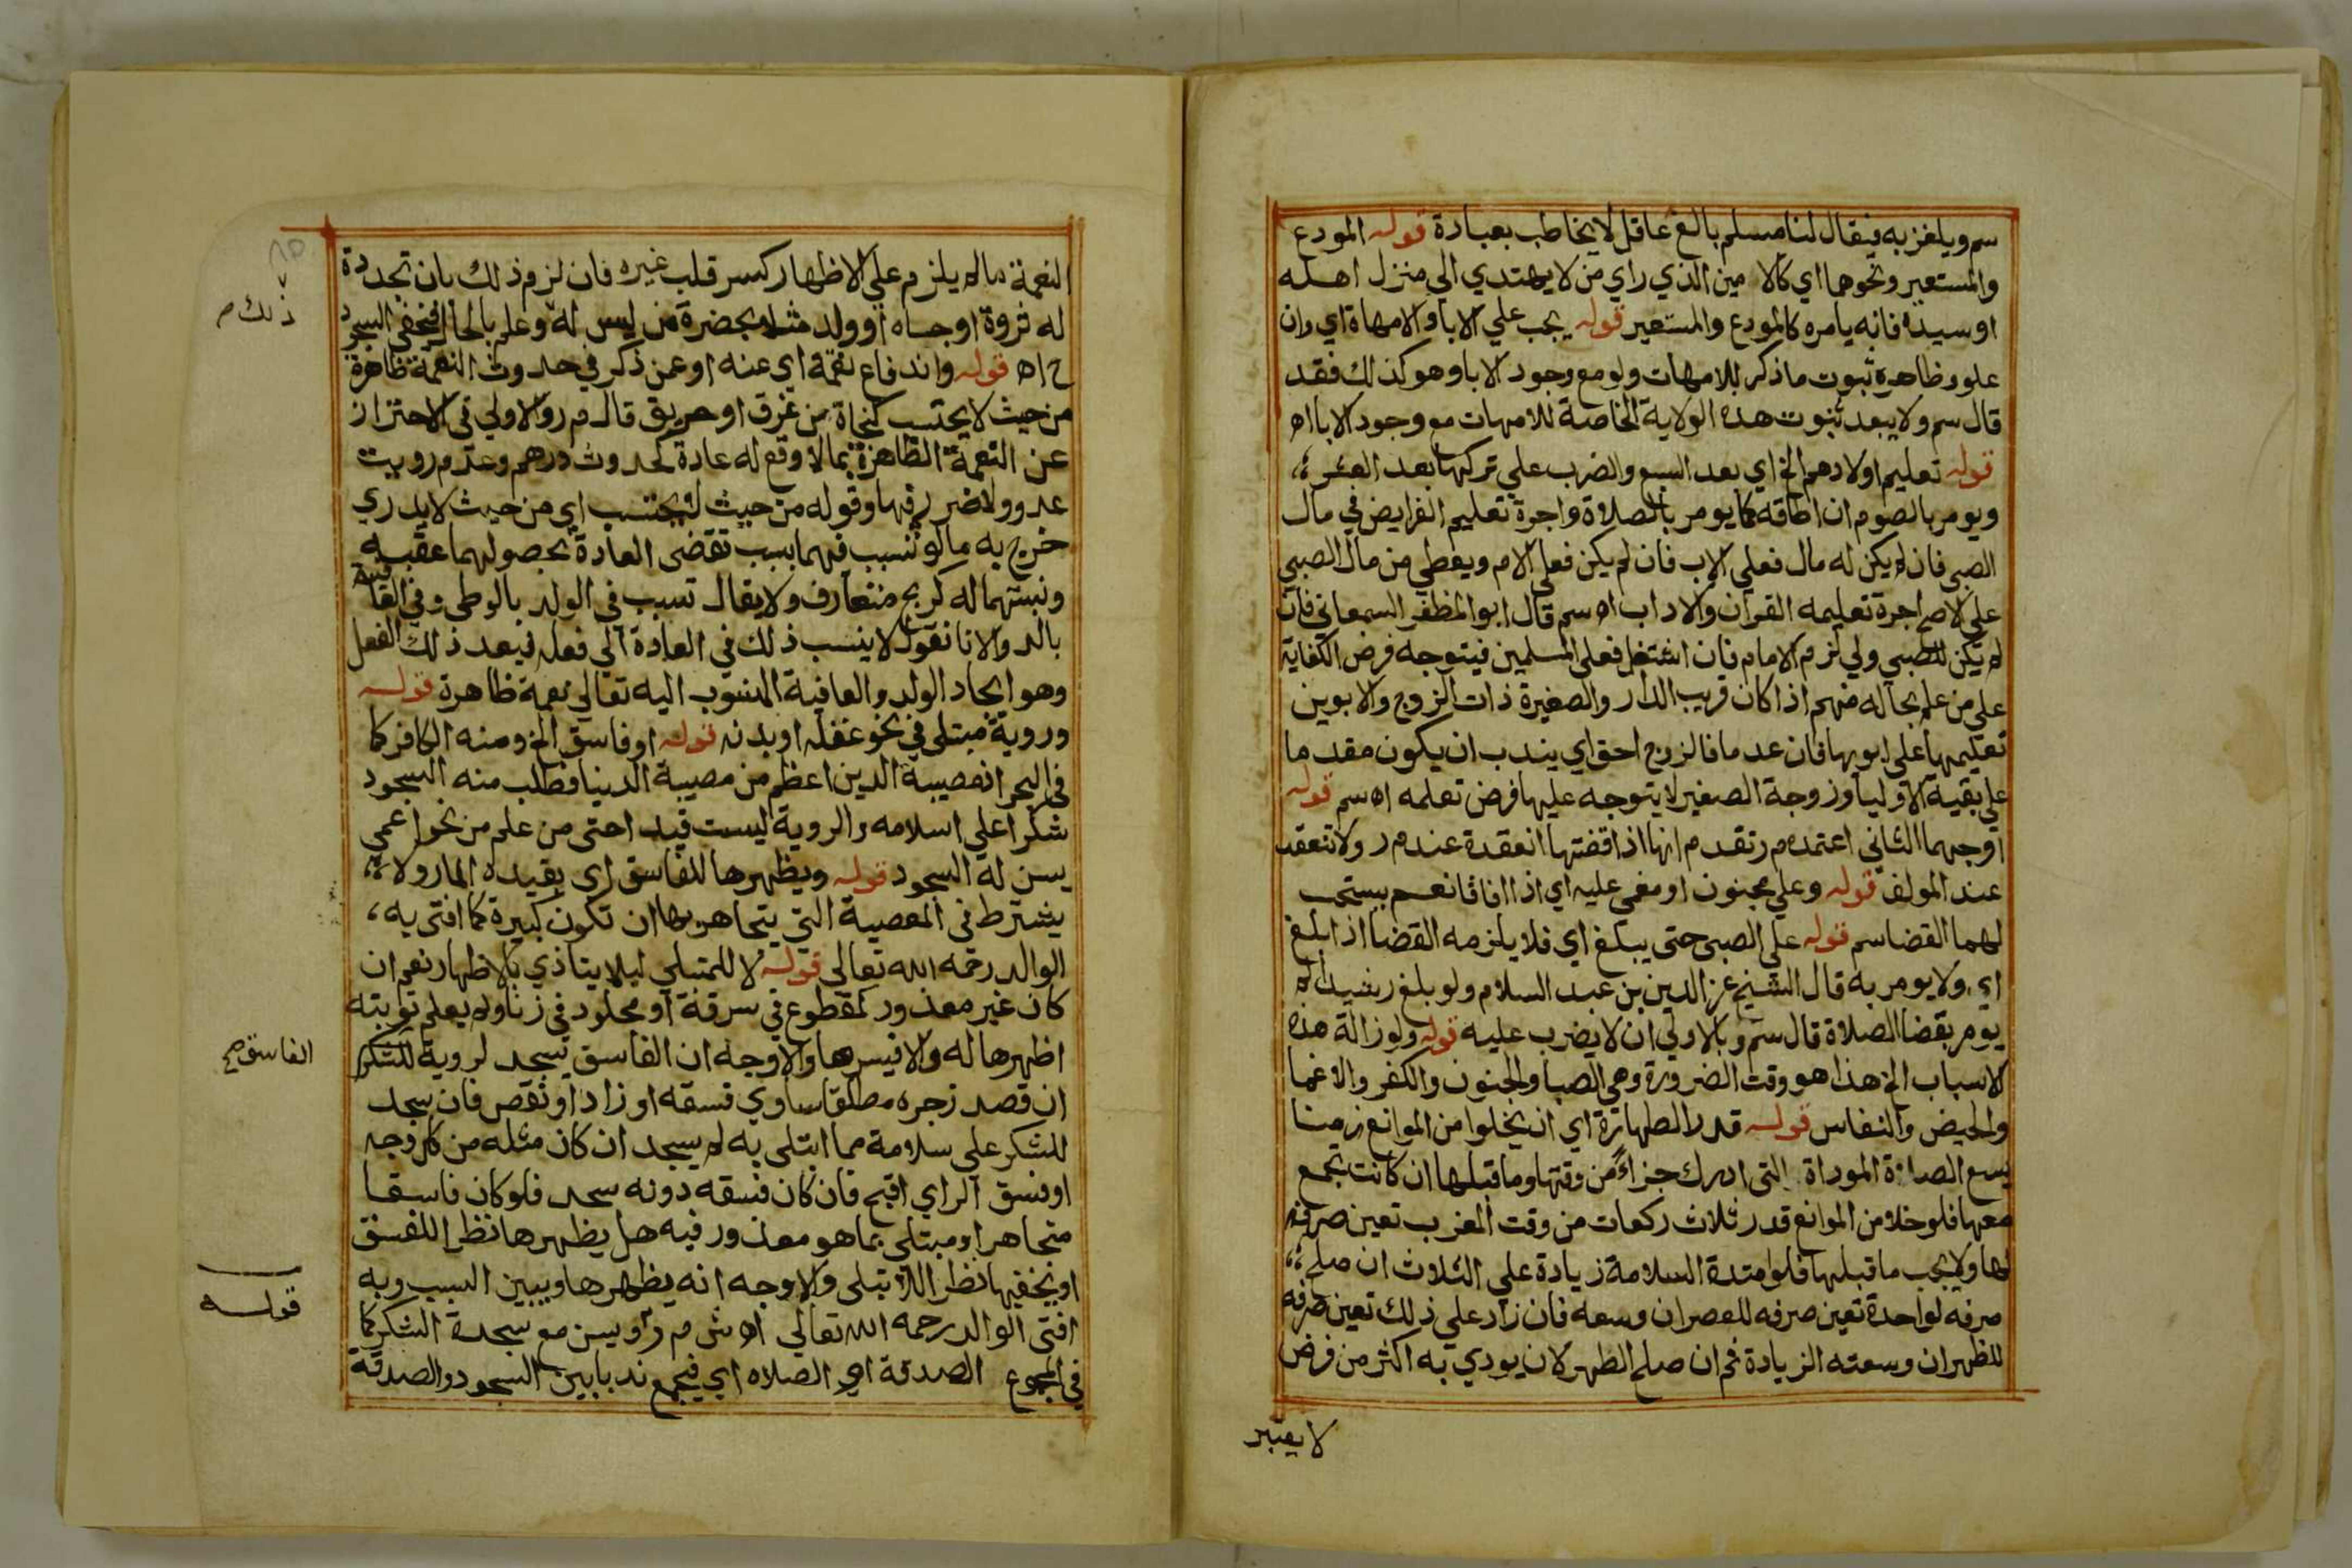 سم ويلغز به فيقال لنا مسلم بالغ عاقل لا يخاطب بعبادة قوله المودع
والمستعير ونحوهما اي كالامين الذي راي من لا يهتدي الي منزل اهله
او سيده فانه يامره كالمودع والمستعير قوله يجب علي الابا والامهاة اي وان
علو وظاهره ثبوت ما ذكر للامهات ولو مع وجود الابا وهو كذلك فقد
قال سم ولا يبعد ثبوت هذه الولاية الخاصة للامهات مع وجود الابا اه
قوله تعليم اولادهم الخ اي بعد السبع والضرب علي تركها بعد العشر
ويومر بالصوم ان اطاقه كما يومر بالصلاة واجرة تعليم الفرايض في مال
الصبي فان لم يكن له مال فعلي الاب فان لم يكن فعلي الام ويعطي من مال الصبي
علي الاصح اجرة تعليمه القران والاداب اه سم قال ابو المظفر السمعاني فان
لم يكن للصبي ولي لزم الامام فان اشتغل فعلي المسلمين فيتوجه فرض الكفاية
علي من علم بحاله منهم اذا كان قريب الدار والصغيرة ذات الزوج والابوين
تعليمها علي ابويها فان عدما فالزوج احق اي يندب ان يكون مقدما
علي بقية الاوليا وزوجة الصغير لا يتوجه عليها فرض تعلمه اه سم قوله
اوجههما الثاني اعتمده م ر تقدم انها اذا قضتها انعقدة عند م ر ولا تنعقد
عند المولف قوله وعلي مجنون او مغمي عليه اي اذا افاقا نعم يستحب
لهما القضا سم قوله علي الصبي حتي يبلغ اي فلا يلزمه القضا اذا بلغ
اي ولا يومر به قال الشيخ عز الدين بن عبد السلام ولو بلغ رشيدا لم
يومر بقضا الصلاة قال سم وبالاولي ان لا يضرب عليه قوله ولو زالة هذه
الاسباب الخ هذا هو وقت الضرورة وهي الصبا والجنون والكفر والاغما
والحيض والنفاس قوله قدر الطهارة اي ان يخلوا من الموانع زمنا
يسع الصلاة الموداة التي ادرك جزاء من وقتها وما قبلها ان كانت تجمع
معها فلو خلا من الموانع قدر ثلاث ركعات من وقت المغرب تعين صرفه
لها ولا يجب ما قبلها فلو امتدة السلامة زيادة علي الثلاث ان صلح
صرفه لواحدة تعين صرفه للعصر ان وسعه فان زاد علي ذلك تعين صرفه
للظهر ان وسعته الزيادة فم ان صلح الظهر لان يودي به اكثر من فرض
لا يعتبر
النعمة ما لم يلزم علي الاظهار كسر قلب غيره فان لزم ذلك بان تجددة
ذلك
له ثروة او جاه او ولد مثلا بحضرة من ليس له وعلم بالحال فيخفي السجود
ح اه قوله واندفاع نقمة اي عنه او عمن ذكر في حدوث النعمة ظاهرة
من حيث لا يحتسب كنجاة من غرق او حريق قال م ر والاولي في الاحتراز
عن النعمة الظاهرة بما لا وقع له عادة كحدوث درهم وعدم رويت
عدو ولا ضرر فيها وقوله من حيث لا يحتسب اي من حيث لا يدري
خرج به ما لو تسبب فيهما بسبب تقضي العادة بحصولهما عقبه
ونسبتهما له كربح متعارف ولا يقال تسبب في الولد بالوطي وفي العافية
بالدوا لانا نقول لا ينسب ذلك في العادة الي فعله فيعد ذلك الفعل
وهو ايجاد الولد والعافية المنسوب اليه تعالي نعمة ظاهرة قوله
وروية مبتلي في نحو عقله او بدنه قوله او فاسق الخ ومنه الكافر كما
في البحر اذ مصيبة الدين اعظم من مصيبة الدنيا فطلب منه السجود
شكرا علي اسلامه والروية ليست قيدا حتي من علم من نحو اعمي
يسن له السجود قوله ويظهرها للفاسق اي بقيده المار ولا
يشترط في المعصية التي يتجاهر بها ان تكون كبيرة كما افتي به
الوالد رحمه الله تعالي قوله لا للمتبلي ليلا يتاذي بالاظهار نعم ان
كان غير معذور كمقطوع في سرقة او مجلود في زنا ولم يعلم توبته
اظهرها له والا فيسرها والاوجه ان الفاسق يسجد لروية للشكر
الفاسق صح
ان قصد زجره مطلقا ساوي فسقه او زاد او نقص فان سجد
للشكر علي سلامة مما ابتلي به لم يسجد ان كان مثله من كل وجه
او فسق الراي اقبح فان كان فسقه دونه سجد فلو كان فاسقا
متجاهرا ومبتلي بما هو معذور فيه هل يظهرها نظرا للفسق
او يخفيها نظرا للابتلي والاوجه انه يظهرها ويبين السبب وبه
قوله
افتي الوالد رحمه الله تعالي اه ش م ر او يسن مع سجدة الشكر كما
في المجموع الصدقة اي الصلاه اي فيجمع ندبا بين السجود والصدقة